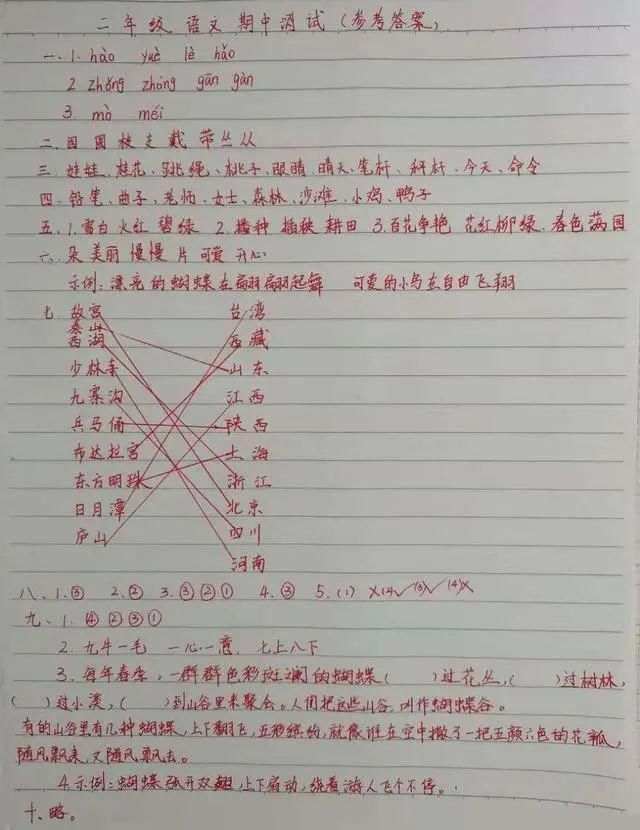 二年级 语文 期中测试(参考答案)
一、1. hào yuè lè hǎo
2 zhǒng zhòng gān gàn
3. mò méi
二、园 圆 枝 支 戴 带 丛 从
三、娃娃、桂花、跳绳、桃子、眼睛、晴天、笔杆、秤杆、今天、命令
四、铅笔、曲子、老师、女士、森林、沙滩、小鸡、鸭子
五、1.雪白 火红 碧绿 2.播种 插秧 耕田 3.百花争艳 花红柳绿、春色满园
六、朵 美丽 慢慢 片 可爱 开心
示例:漂亮的蝴蝶在翩翩起舞 可爱的小鸟在自由飞翔
七、故宫 台湾
泰山
西湖 西藏
少林寺 山东
九寨沟 江西
兵马俑 陕西
布达拉宫 上海
东方明珠 浙江
日月潭 北京
庐山 四川
河南
八、1.③ 2.② 3.③②① 4.③ 5.(1)×(2)✓(3)✓(4)×
九、1.④②③①
2.九牛一毛 一心一意、七上八下
3.每年春季,一群群色彩斑斓的蝴蝶( )过花丛,( )过树林,
( )过小溪,( )到山谷里来聚会。人们把这些山谷,叫作蝴蝶谷。
有的山谷里有几种蝴蝶,上下翻飞,五彩缤纷,就像谁在空中撒了一把五颜六色的花瓣,
随风飘来,又随风飘去。
4.示例:蝴蝶张开双翅,上下扇动,绕着游人飞个不停。
十、略。